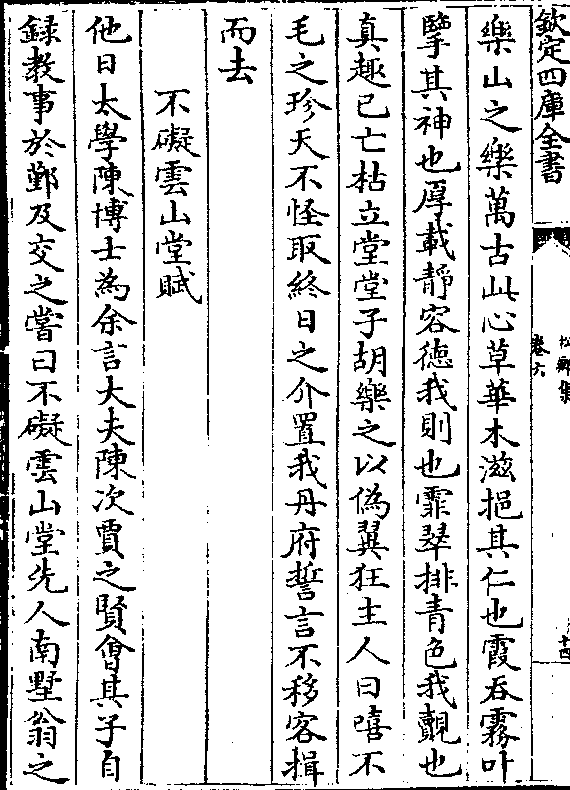 欽定四庫全書
松鄉集
卷六
十四
樂山之樂萬古此心草華木滋挹其仁也霞吞霧吐
擥其神也厚載靜容徳我則也霏翠排青色我觀也
真趣已亡枯立堂堂子胡樂之以偽翼狂主人曰嘻不
毛之珍天不怪取終日之介置我丹府誓言不移客揖
而去
不礙雲山堂賦
他日太學陳博士為余言大夫陳次賈之賢㑹其子自
録教事於鄞及交之嘗曰不礙雲山堂先人南墅翁之